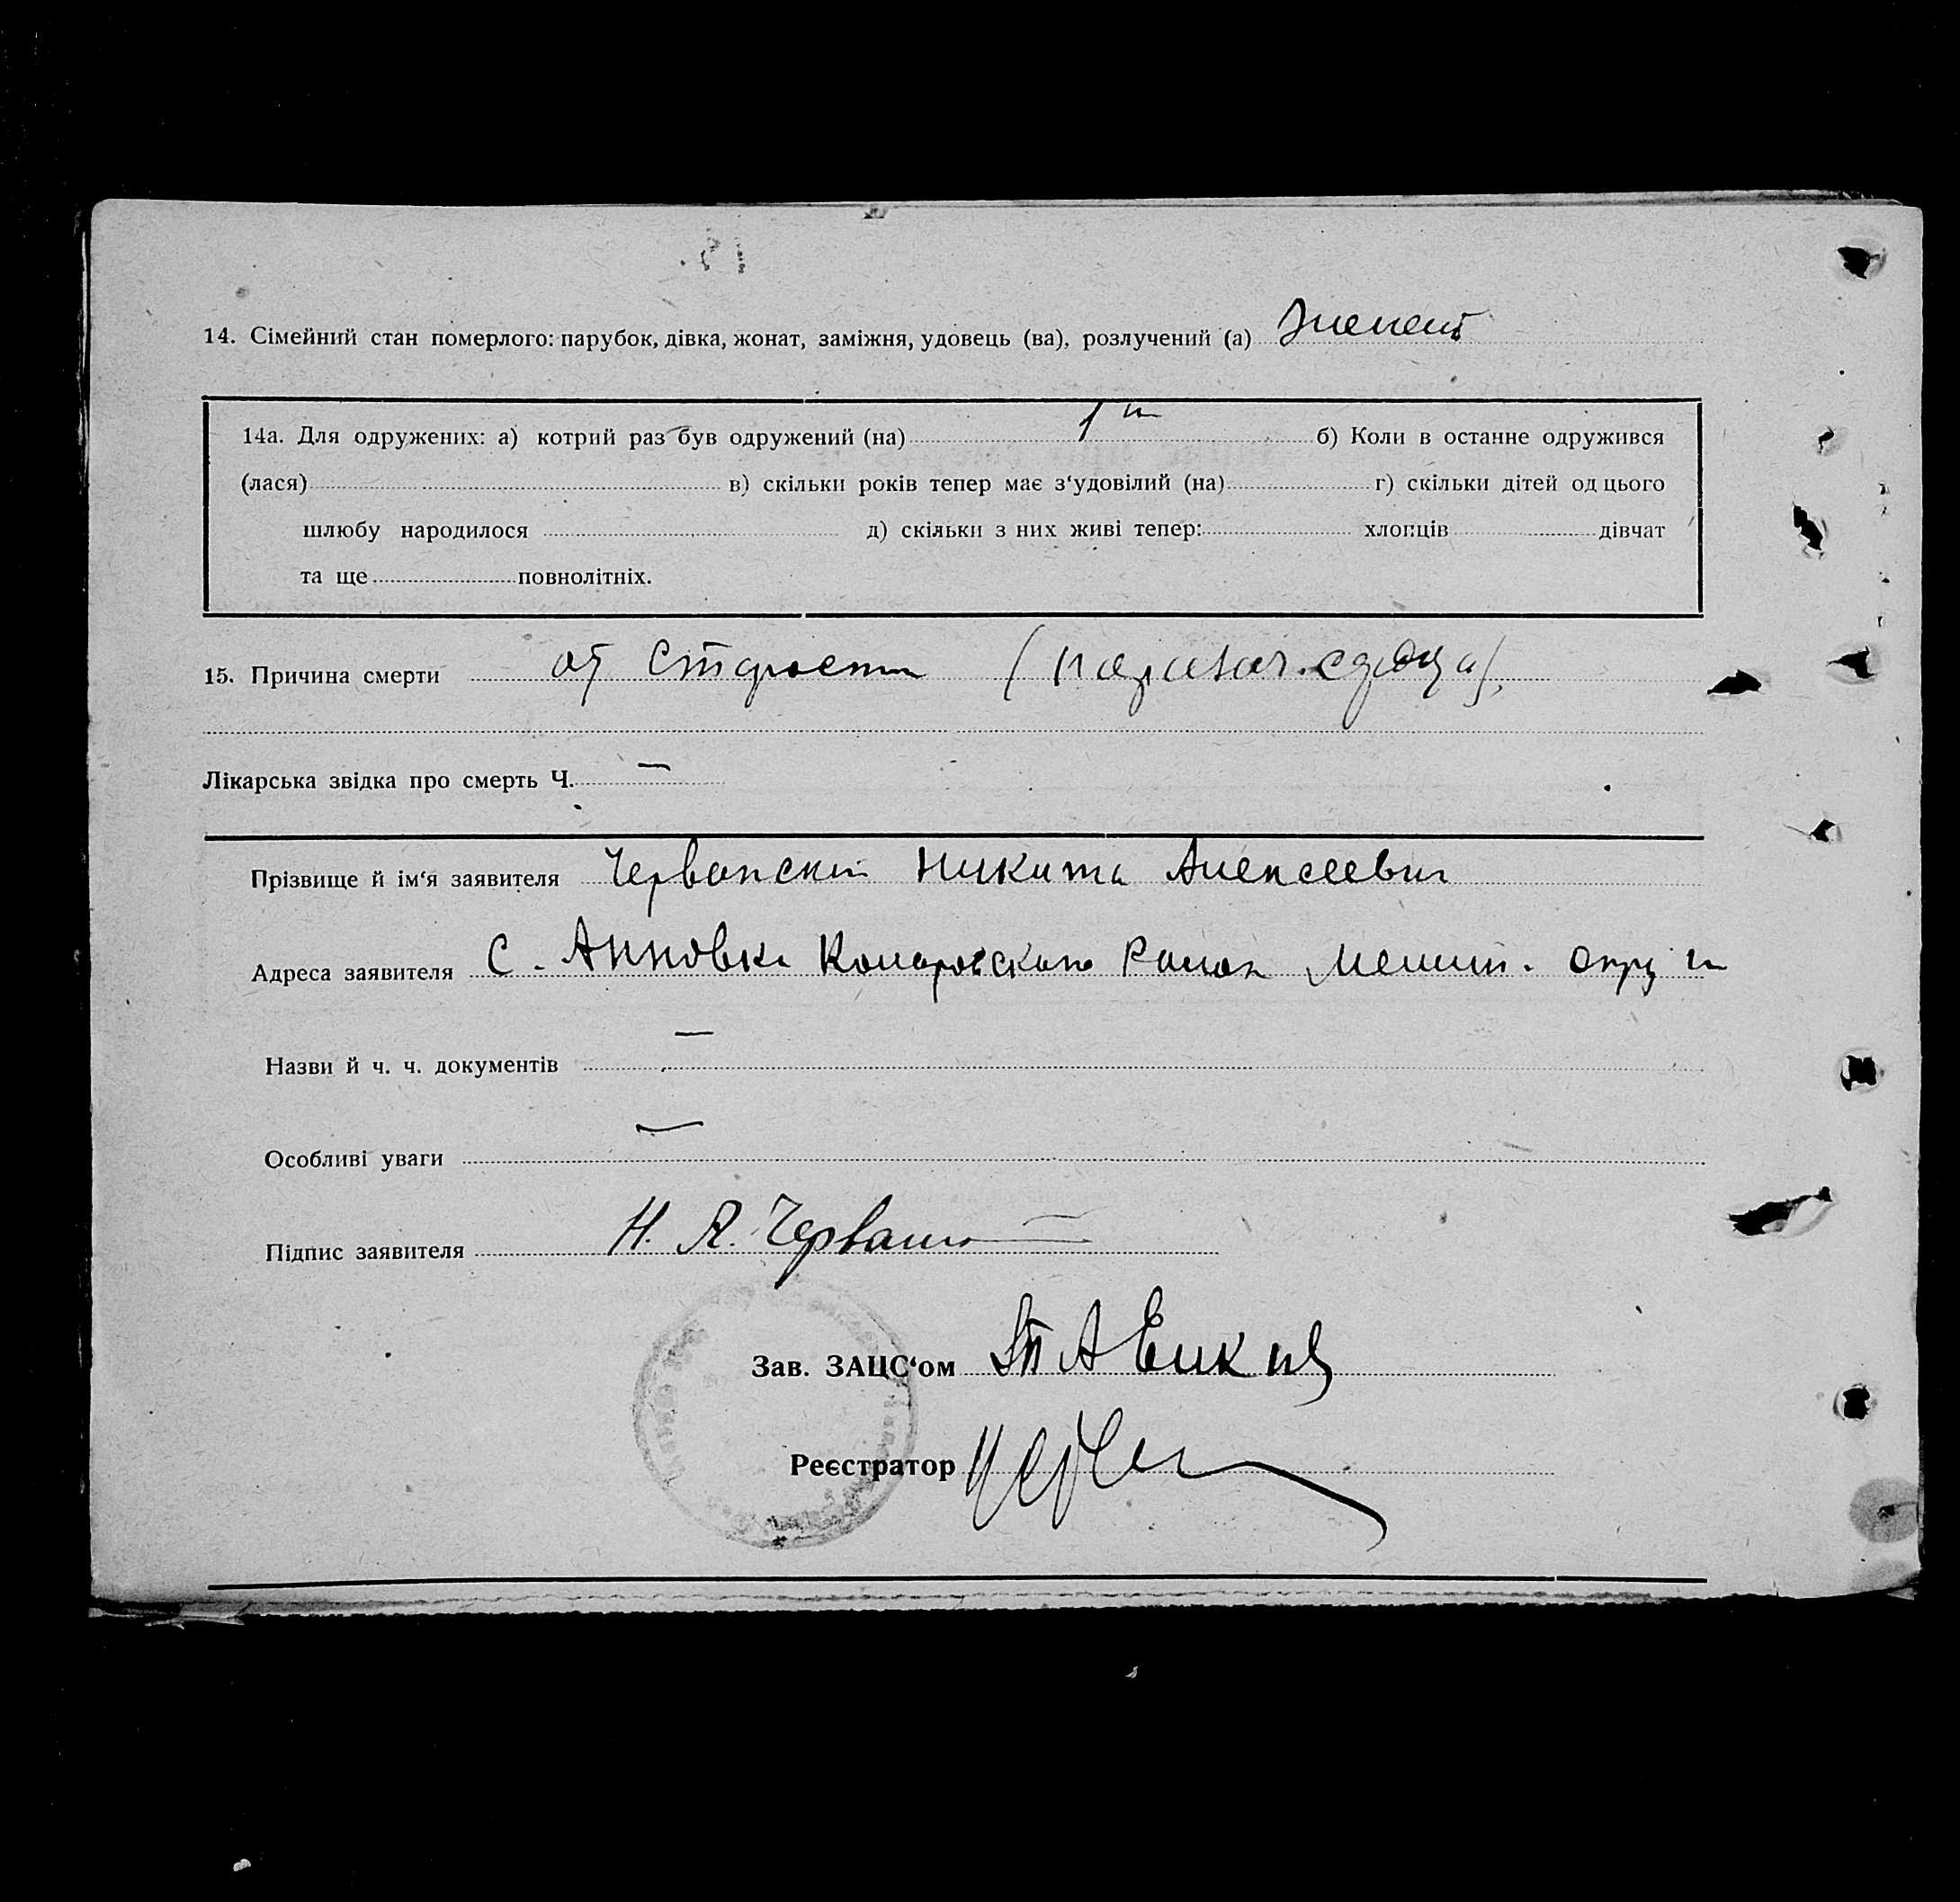 14. Сімейний стан померлого: парубок, дівка, жонат, заміжня, удовець (ва), розлучений (а) женат
14а. Для одружених: а) котрий раз був одружений (на) 1й б) Коли в останне одружився
(лася) в) скільки років тепер має з‘удовілий (на) г) скільки дітей од цього
шлюбу народилося д) скільки з них живі тепер: хлопців дівчат
та ще повнолітніх.
15. Причина смерти от старости (паралич сердца).
Лікарська звідка про смерть Ч. —
Прізвище й ім‘я заявителя Червонский Никита Алексеевич
Адреса заявителя С. Анновка Комаровского Район Мелит. округи
Назви й ч. ч. документів —
Особливі уваги —
Підпис заявителя Н. А.
Зав. ЗАЦС‘ом
Реєстратор